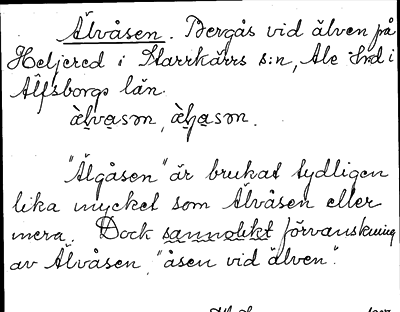 Älvåsen. Bergås vid älven på
Heljered i Starrkärrs s:n, Ale hd i
Älfsborgs län.
"Älgåsen" är brukat tydligen
lika mycket som Älvåsen eller
mera. Dock sannolikt förvanskning
av Älvåsen, "åsen vid älven".